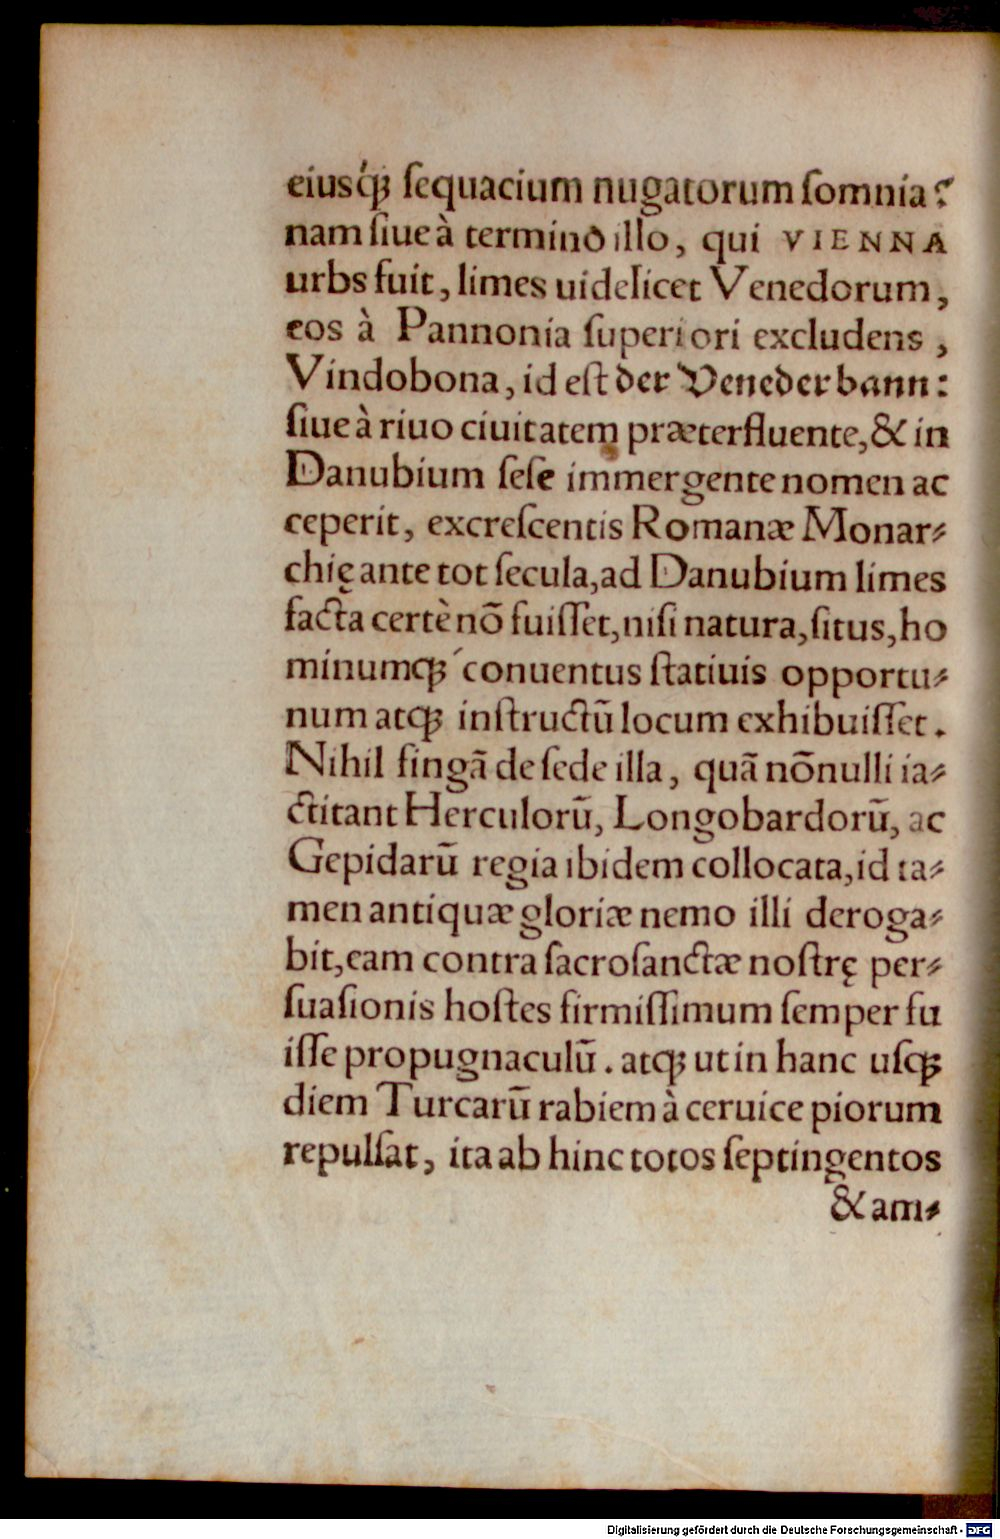 eiusq́ꝫ ſequacium nugatorum ſomnia?
nam ſiue à termino illo, qui VIENNA
urbs fuit, limes uidelicet Venedorum,
eos à Pannonia ſuperiori excludens,
Vindobona, id eſt der Veneder bann:
ſiue à riuo ciuitatem præterfluente, & in
Danubium ſeſe immergente nomen ac
ceperit, excreſcentis Romanæ Monar⸗
chię ante tot ſecula, ad Danubium limes
facta certè nō fuiſſet, niſi natura, ſitus, ho
minumqꝫ́ conuentus ſtatiuis opportu⸗
num atqꝫ inſtructū locum exhibuiſſet.
Nihil fingā de ſede illa, quā nōnulli ia⸗
ctitant Herculorū, Longobardorū, ac
Gepidarū regia ibidem collocata, id ta⸗
men antiquæ gloriæ nemo illi deroga⸗
bit, eam contra ſacroſanctæ noſtrę per⸗
ſuaſionis hoſtes firmiſſimum ſemper fu
iſſe propugnaculū. atqꝫ ut in hanc uſqꝫ
diem Turcarū rabiem à ceruice piorum
repulſat, ita ab hinc totos ſeptingentos
& am⸗
Digitalisierung gefördert durch die Deutsche Forschungsgemeinschaft - DFG